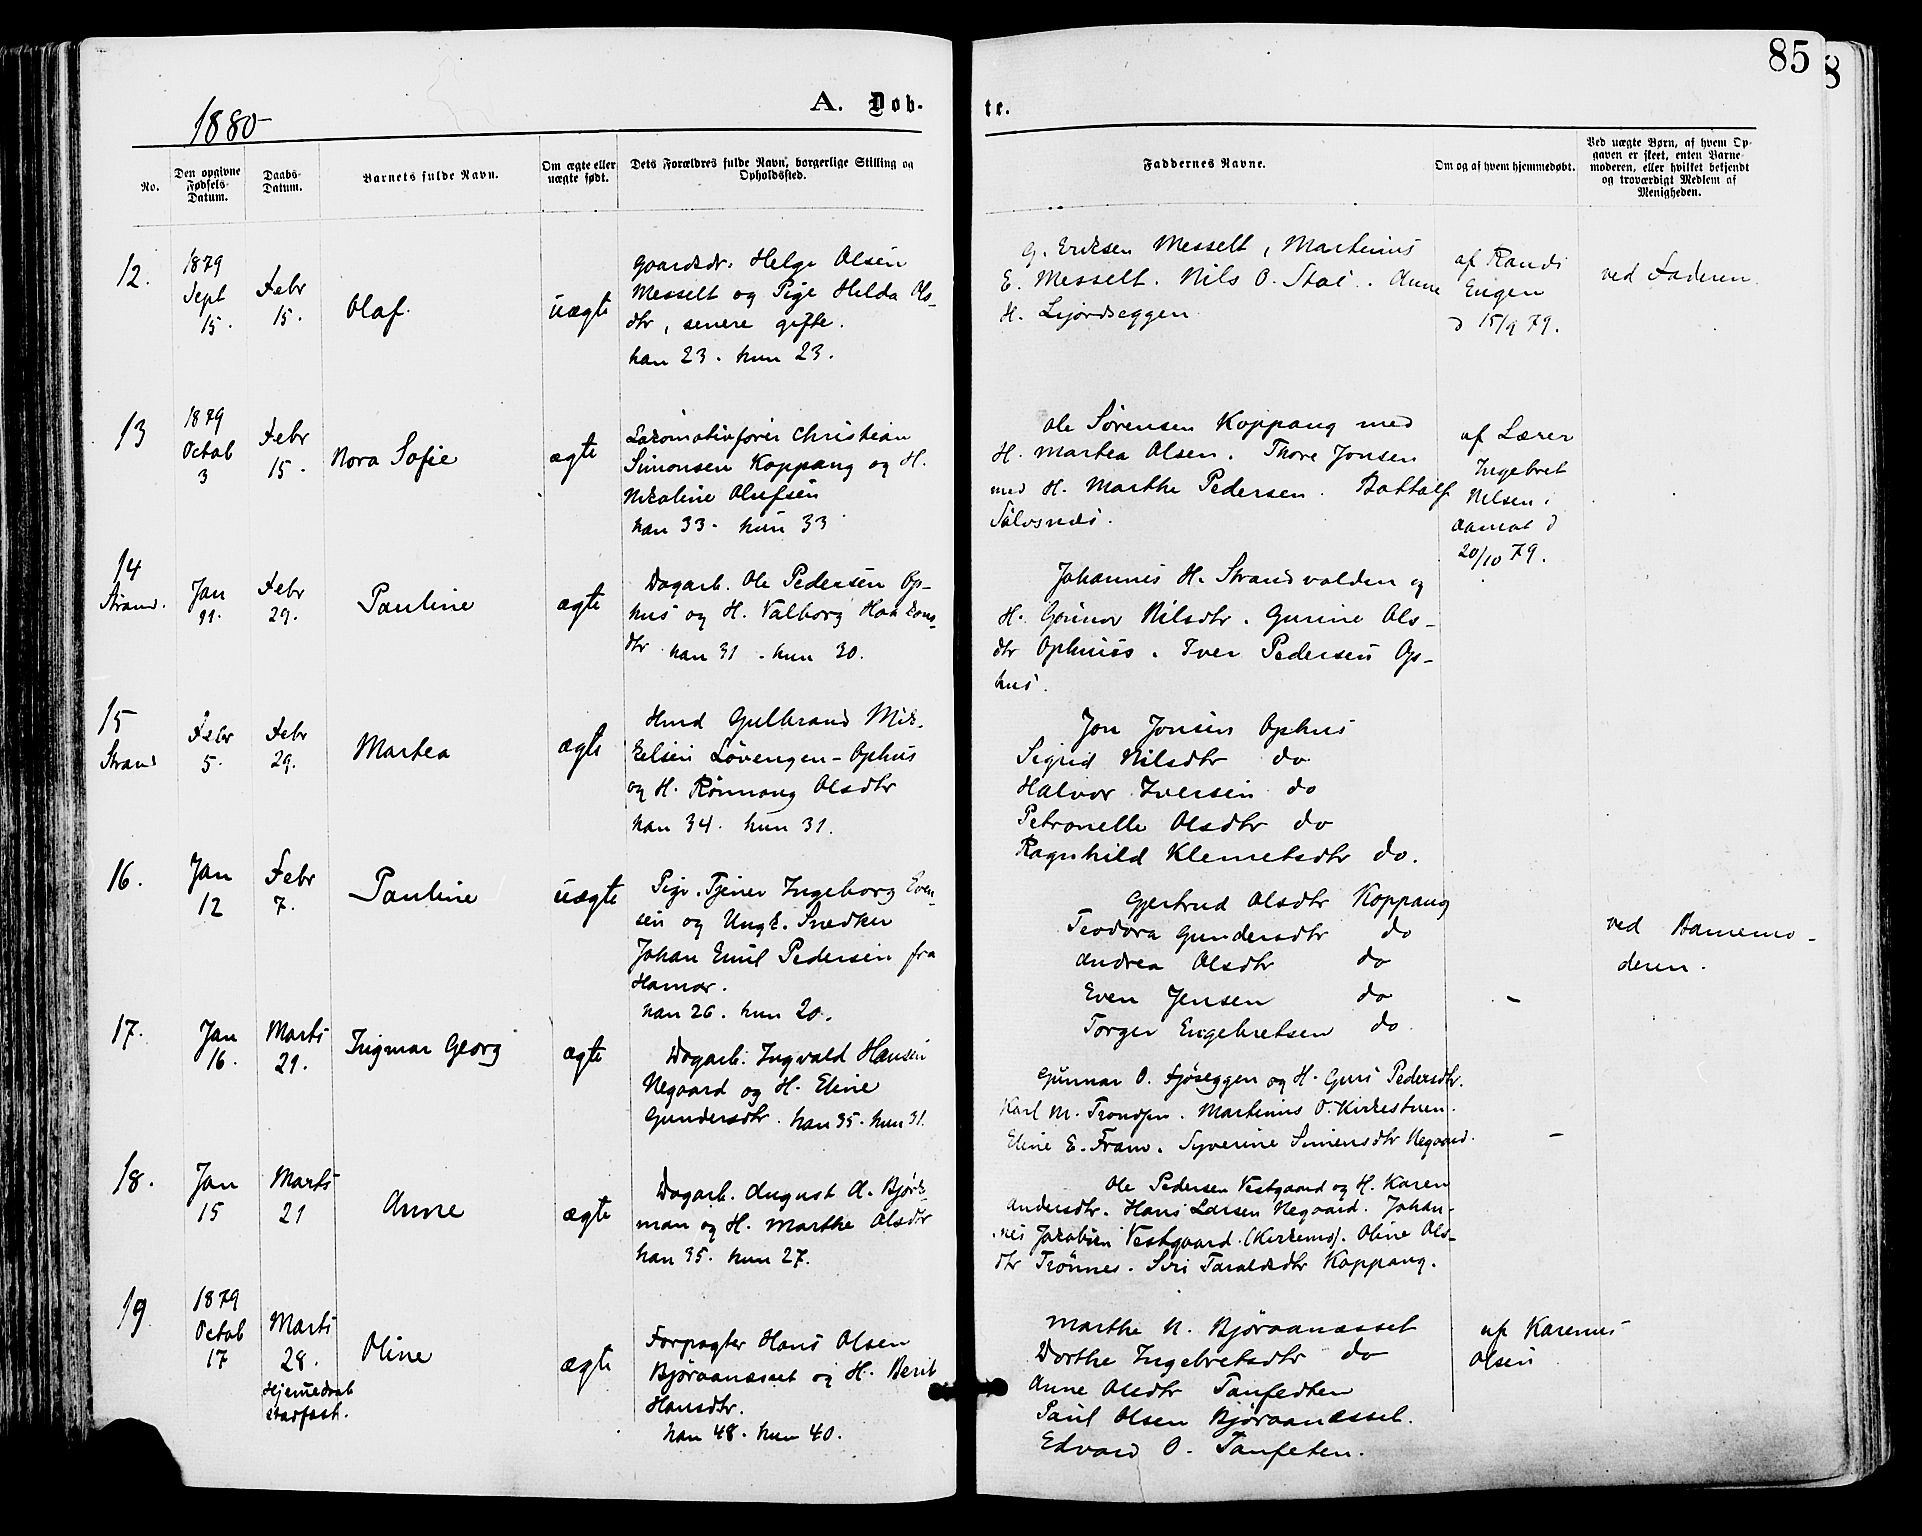 85
8
1880
A. Døb-
te.
No.
Den opgivne
Fødsels-
Datum.
Daabs-
Datum.
Barnets fulde Navn.
Om ægte eller
uægte født.
Dets Forældres fulde Navn, borgerlige Stilling og
Opholdssted.
Faddernes Navne.
Om og af hvem hjemmedøbt.
Ved uægte Børn, af hvem Op-
gaven er skeet, enten Barne-
moderen, eller hvilket bekjendt
og troværdigt Medlem af
Menigheden.
12.
1879
Sept
15.
Febr
15.
Olaf.
uægte
Gaardbr. Helge Olsen
Messelt og Pige Helda Ols-
dtr, senere gifte.
han 23. hun 23.
G. Eriksen Messelt, Martinus
E. Messelt. Nils O. Stai. Anne
H. Ljørdseggen.
af Randi
Engen
d 15/9 79.
ved Faderen.
13
1879
Octob
3
Febr
15.
Nora Sofie
ægte
Lokomotivfører Christian
Simonsen Koppang og H.
Nikoline Olufsen
han 33. hun 33
Ole Sørensen Koppang med
H. Martea Olsen. Thore Jonsen
med H. Marthe Pedersen. Bottolf
Sølvsnæs.
af Lærer
Ingebret
Nilsen i
Aamot d
20/10 79.
14
Strand.
Jan
21.
Febr
29.
Pauline
ægte
Dagarb. Ole Pedersen Op-
hus og H. Valborg Haakons-
dtr. han 31. hun 30.
Johannes H. Strandvolden og
H. Gunnor Nilsdtr. Gurine Ols-
dtr Ophuus. Iver Pedersen Op-
hus.
15
Strand
Febr
5.
Febr
29.
Martea
ægte
Hmd Gulbrand Mik-
kelsen Løvengen-Ophus
og H. Rønnaug Olsdtr
han 34. hun 31.
Jon Jonsen Ophus
Sigrid Nilsdtr do
Halvor Iversen do
Petronelle Olsdtr do
Ragnhild Klemetsdtr do.
16.
Jan
12
Febr
7.
Pauline
uægte
Pige. Tjener Ingeborg Even-
sen og Ungk. Snedker
Johan Emil Pedersen fra
Hamar.
han 26. hun 20.
Gjertrud Olsdtr Koppang
Teodora Gundersdtr do
Andrea Olsdtr do
Even Jensen do
Torger Engebretsen do
-
ved Barnemo-
deren.
17.
Jan
16.
Marts
21.
Ingmar Georg
ægte
Dagarb. Ingvald Hansen
Negaard og H. Eline
Gundersdtr. han 35. hun 31.
Gunnar O. Fjøseggen og H. Guri Pedersdtr.
Karl M. Trondsen. Martinus O. Kirkestuen.
Eline E. Fram. Syverine Simensdtr Negaard.
-
18.
Jan
15
Marts
21
Anne
ægte
Dagarb. August A. Bjørk-
man og H. Marthe Olsdtr
han 35. hun 27.
Ole Pedersen Vestgaard og H. Karen
Andersdtr. Hans Larsen Negaard. Johan-
nes Jakobsen Vestgaard. Oline Ols-
dtr Trønnes. Siri Taraldsdtr Koppang.
19
1879
Octob
17
Marts
28.
Hjemmedaab
stadfæst.
Oline
ægte
Forpagter Hans Olsen
Bjøraanæsset og H. Berit
Hansdtr.
han 48. hun 40.
Marthe N. Bjøraanæsset
Dorthe Ingebretsdtr do
Anne Olsdtr Tanfedten
Paul Olsen Bjøraanæsset.
Edvard O. Tanfeten.
af Karenus
Olsen